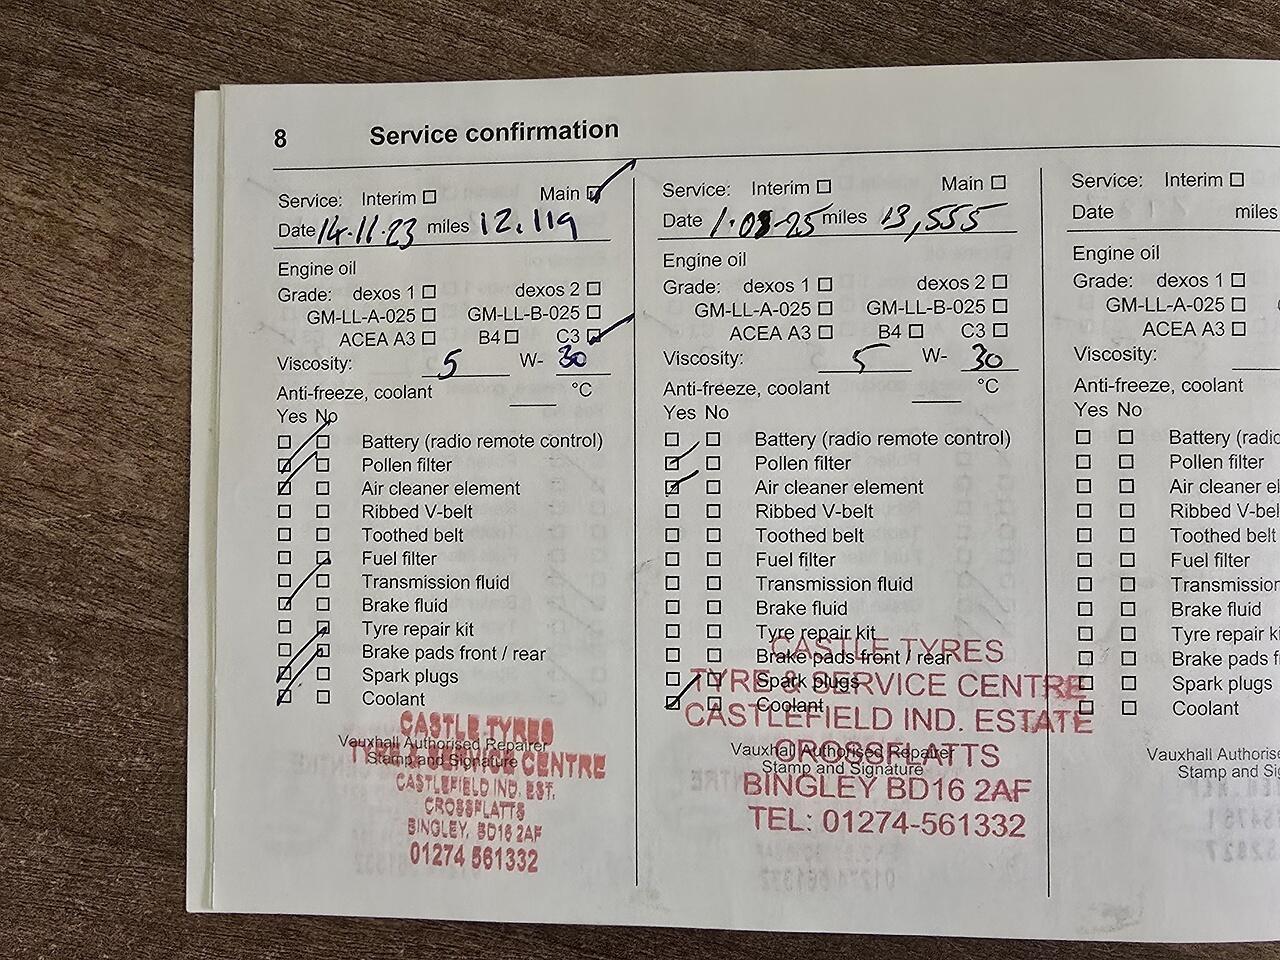 8 Service confirmation
Service: Interim Main
Date 14.11.23 miles 12.119
Engine oil
Grade: dexos 1 dexos 2
GM-LL-A-025 GM-LL-B-025
ACEA A3 B4 C3
Viscosity: 5 W- 30
Anti-freeze, coolant °C
Yes No
Battery (radio remote control)
Pollen filter
Air cleaner element
Ribbed V-belt
Toothed belt
Fuel filter
Transmission fluid
Brake fluid
Tyre repair kit
Brake pads front / rear
Spark plugs
Coolant
Vauxhall Authorised Repairer
Stamp and Signature
CASTLE TYRES
TYRE & SERVICE CENTRE
CASTLEFIELD IND. EST.
CROSSFLATTS
BINGLEY, BD16 2AF
01274 561332
Service: Interim Main
Date miles 13,555
Engine oil
Grade: dexos 1 dexos 2
GM-LL-A-025 GM-LL-B-025
ACEA A3 B4 C3
Viscosity: 5 W- 30
Anti-freeze, coolant °C
Yes No
Battery (radio remote control)
Pollen filter
Air cleaner element
Ribbed V-belt
Toothed belt
Fuel filter
Transmission fluid
Brake fluid
Tyre repair kit
Brake pads front / rear
Spark plugs
Coolant
Vauxhall Authorised Repairer
Stamp and Signature
CASTLE TYRES
TYRE & SERVICE CENTRE
CASTLEFIELD IND. ESTATE
CROSSFLATTS
BINGLEY BD16 2AF
TEL: 01274-561332
Service: Interim
Date miles
Engine oil
Grade: dexos 1
GM-LL-A-025
ACEA A3
Viscosity:
Anti-freeze, coolant
Yes No
Battery (radio
Pollen filter
Air cleaner el
Ribbed V-belt
Toothed belt
Fuel filter
Transmission
Brake fluid
Tyre repair kit
Brake pads f
Spark plugs
Coolant
Vauxhall Authorise
Stamp and Sig